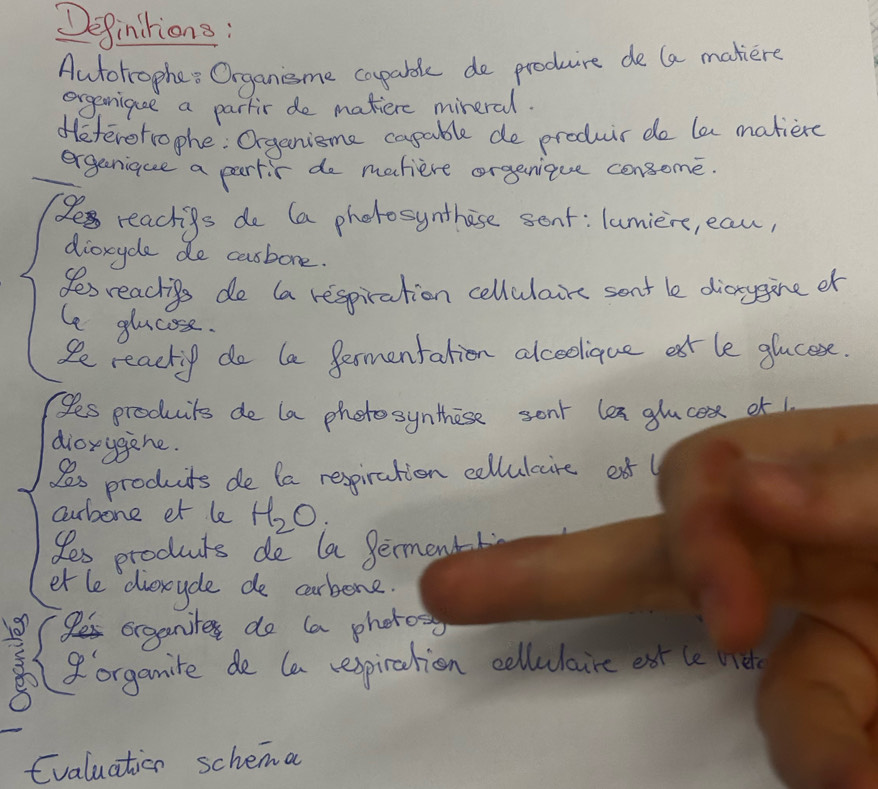 Définitions :
Autotrophe : Organisme capable de produire de la matière
organique a partir de matiere mineral.
Hétérotrophe : Organisme capable de produir de la matière
organique a partir de matière organique consomé.
Les reactifs de la photosynthèse sont : lumière, eau,
dioxyde de carbone.
Les reactifs de la réspiration cellulaire sont le dioxygène et
le glucose.
Le reactif de la fermentation alcoolique est le glucose.
Les produits de la photosynthèse sont le glucose et
dioxygène.
Les produits de la respiration cellulaire est
carbone et le H₂O.
Les produits de la
et le dioxyde de carbone.
organites de la
L'organite de la respiration cellulaire est le
Organités
Evaluation schéma